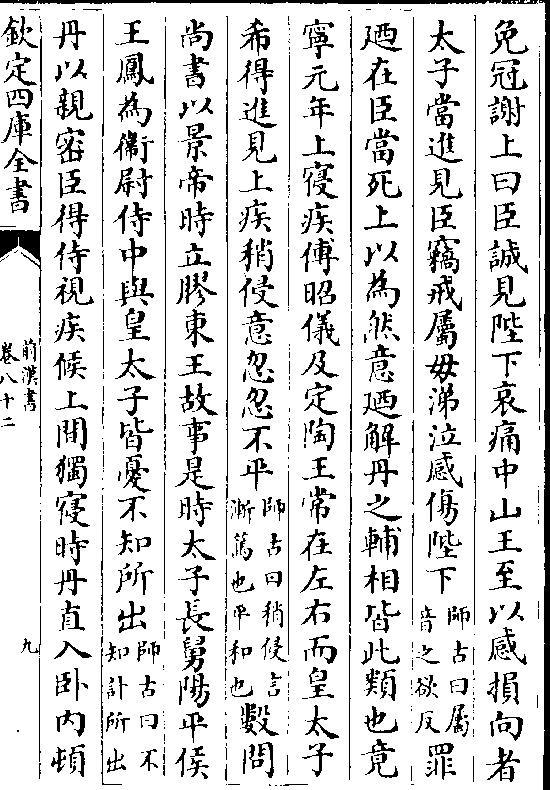 免冠謝上曰臣誠見陛下哀痛中山王至以感損向者
太子當進見臣竊戒屬毋涕泣感傷陛下師古曰屬音之欲反罪
廼在臣當死上以為然意廼解丹之輔相皆此類也竟
寧元年上寑疾傅昭儀及定陶王常在左右而皇太子
希得進見上疾稍侵意忽忽不平師古曰稍侵言漸篤也平和也數問
尚書以景帝時立膠東王故事是時太子長舅陽平侯
王鳳為衞尉侍中與皇太子皆憂不知所出師古曰不知計所出
丹以親密臣得侍視疾候上間獨寑時丹直入卧內頓
欽定四庫全書
前漢書
卷八十二
九